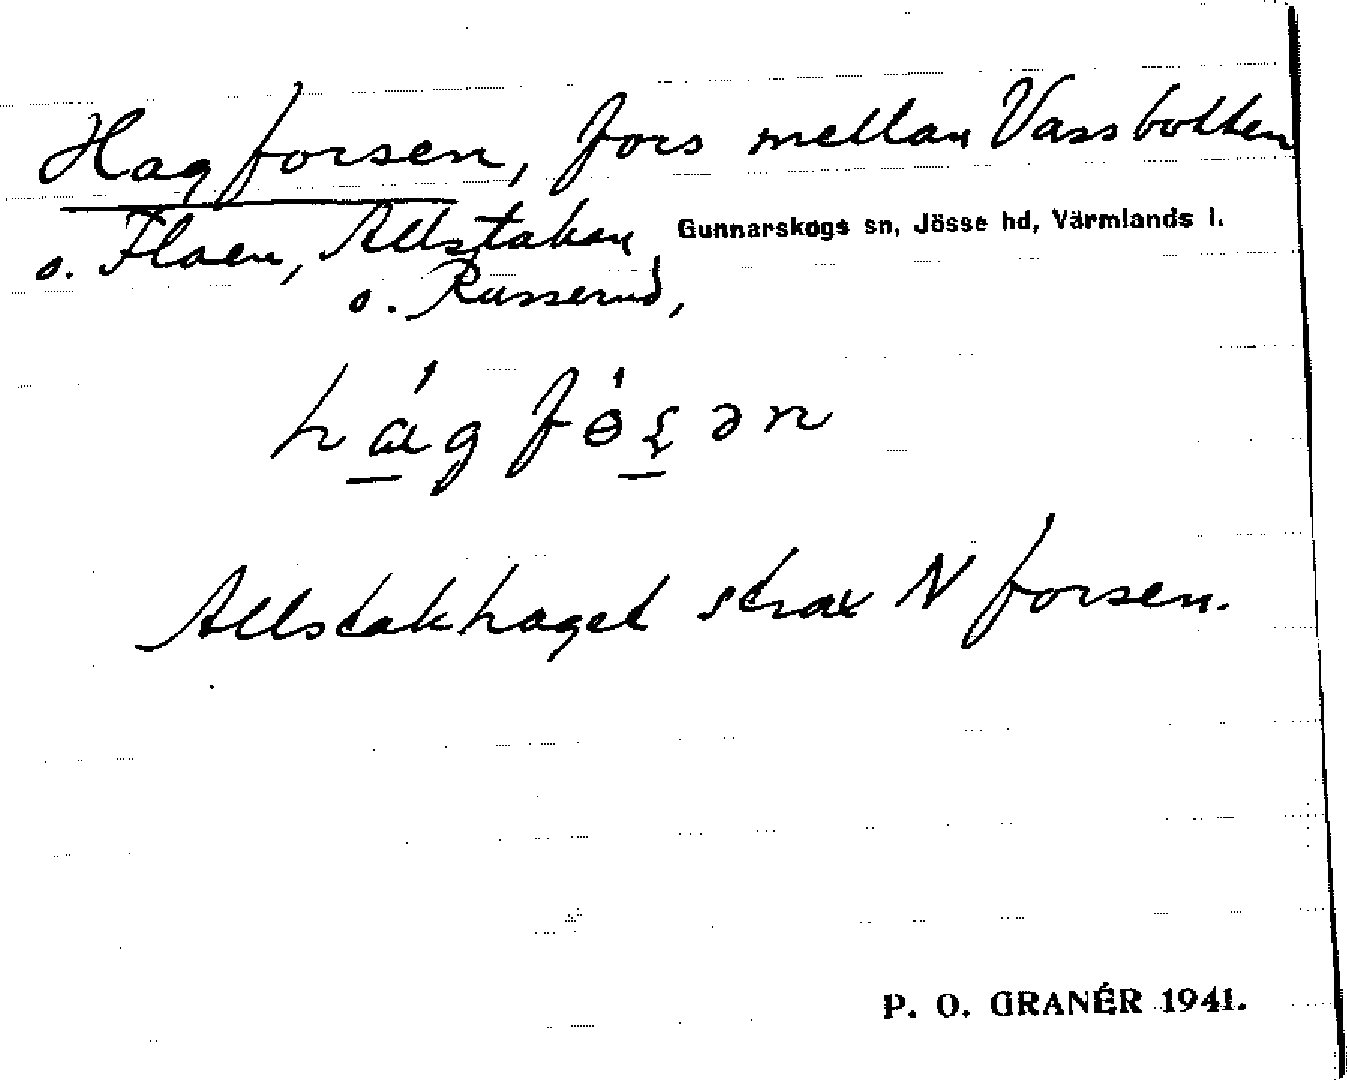 Hagforsen, fors mellan Vassbotten
o. Flaen, Allstakan
Gunnarskogs sn, Jösse hd, Värmlands l.
o. Rasserud,
Allstakhaget strax N forsen.
P. O. GRANÉR 1941.